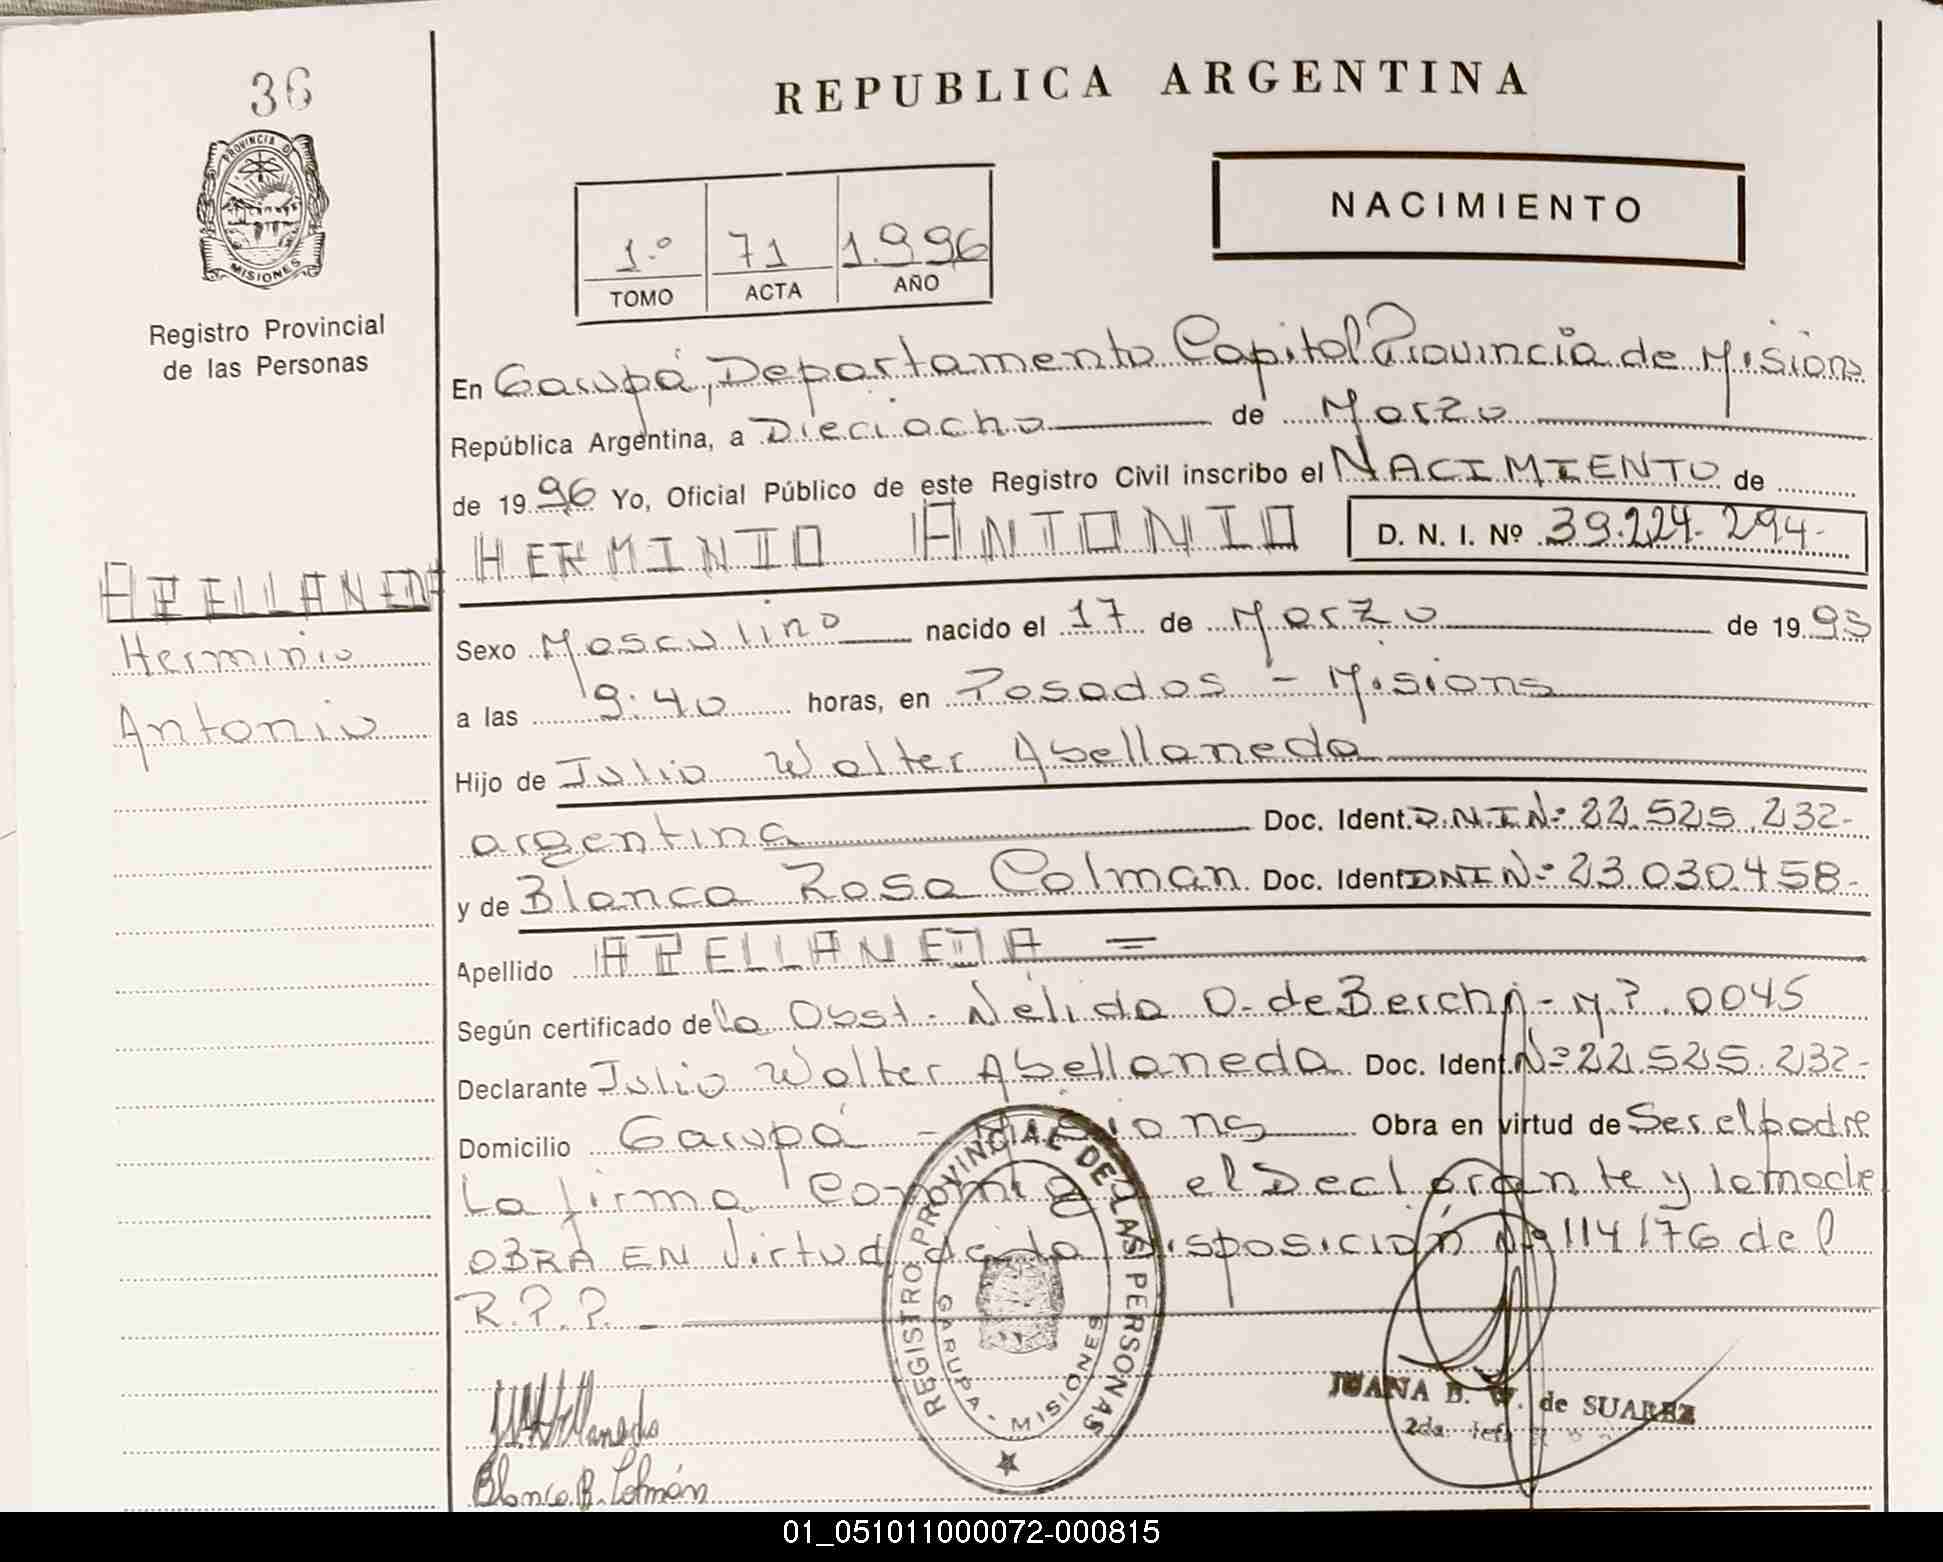 36
REPUBLICA ARGENTINA
PROVINCIA DE
MISIONES
Registro Provincial
de las Personas
NACIMIENTO
1º 71 1.996
TOMO ACTA AÑO
En Garupá, Departamento Capital Provincia de Misions
República Argentina, a Dieciocho de Marzo
de 1996 Yo, Oficial Público de este Registro Civil inscribo el NACIMIENTO de
HERMINIO ANTONIO D. N. I. Nº 39.224.294-
ABELLANEDA
Herminio
Antonio
Sexo Masculino nacido el 17 de Marzo de 1995
a las 9:40 horas, en Posadas - Misions
Hijo de Julio Walter Abellaneda
argentina Doc. Ident. D.N.I Nº 22.525.232-
y de Blanca Rosa Colman Doc. Ident DNI Nº 23.030.458-
Apellido ABELLANEDA =
Según certificado de la Obst. Nélida O. de Berchi - M.P. 0045
Declarante Julio Walter Abellaneda Doc. Ident. Nº 22.525.232-
Domicilio Garupá - Misions Obra en virtud de Ser el padre
La firma Conmigo el Declarante y la madre
OBRA EN Virtud de la Disposición Nº 114/76 del
R.P.P.
REGISTRO PROVINCIAL DE LAS PERSONAS
GARUPA - MISIONES
JUANA B. W. de SUAREZ
2da. Jefe
Blanca R. Colmán
01_051011000072-000815